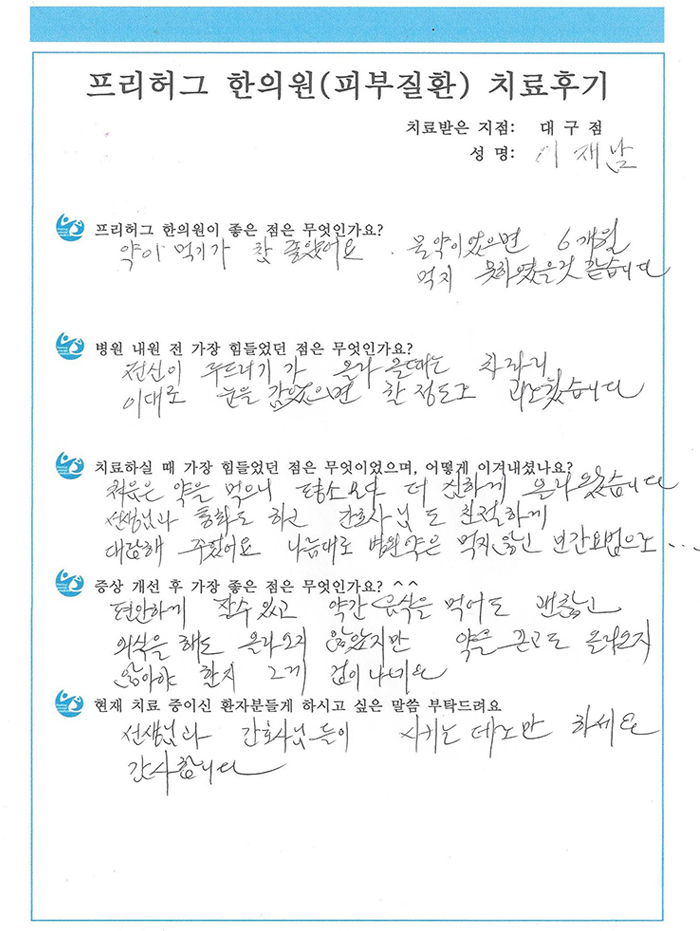 프리허그 한의원(피부질환) 치료후기
치료받은 지점: 대구점
성 명: 이재남
프리허그 한의원이 좋은 점은 무엇인가요?
약이 먹기가 참 좋았어요. 물약이었으면 6개월
먹지 못하였을것 같습니다
병원 내원 전 가장 힘들었던 점은 무엇인가요?
전신이 두드러기가 올라 올때는 차라리
이대로 눈을 감았으면 할 정도로 괴로웠습니다
치료하실 때 가장 힘들었던 점은 무엇이었으며, 어떻게 이겨내셨나요?
처음은 약을 먹으니 평소보다 더 심하게 올라왔습니다
선생님과 통화도 하고 간호사님도 친절하게
대답해 주셨어요 나름대로 병원약은 먹지않고 민간요법으로...
증상 개선 후 가장 좋은 점은 무엇인가요? ^^
편안하게 잘수있고 약간 음식을 먹어도 괜찮고
외식을 해도 올라오지 않았지만 약을 끊고도 올라오지
않아야 할지 그게 겁이나네요
현재 치료 중이신 환자분들게 하시고 싶은 말씀 부탁드려요
선생님과 간호사님들이 시키는 데로만 하세요
감사합니다